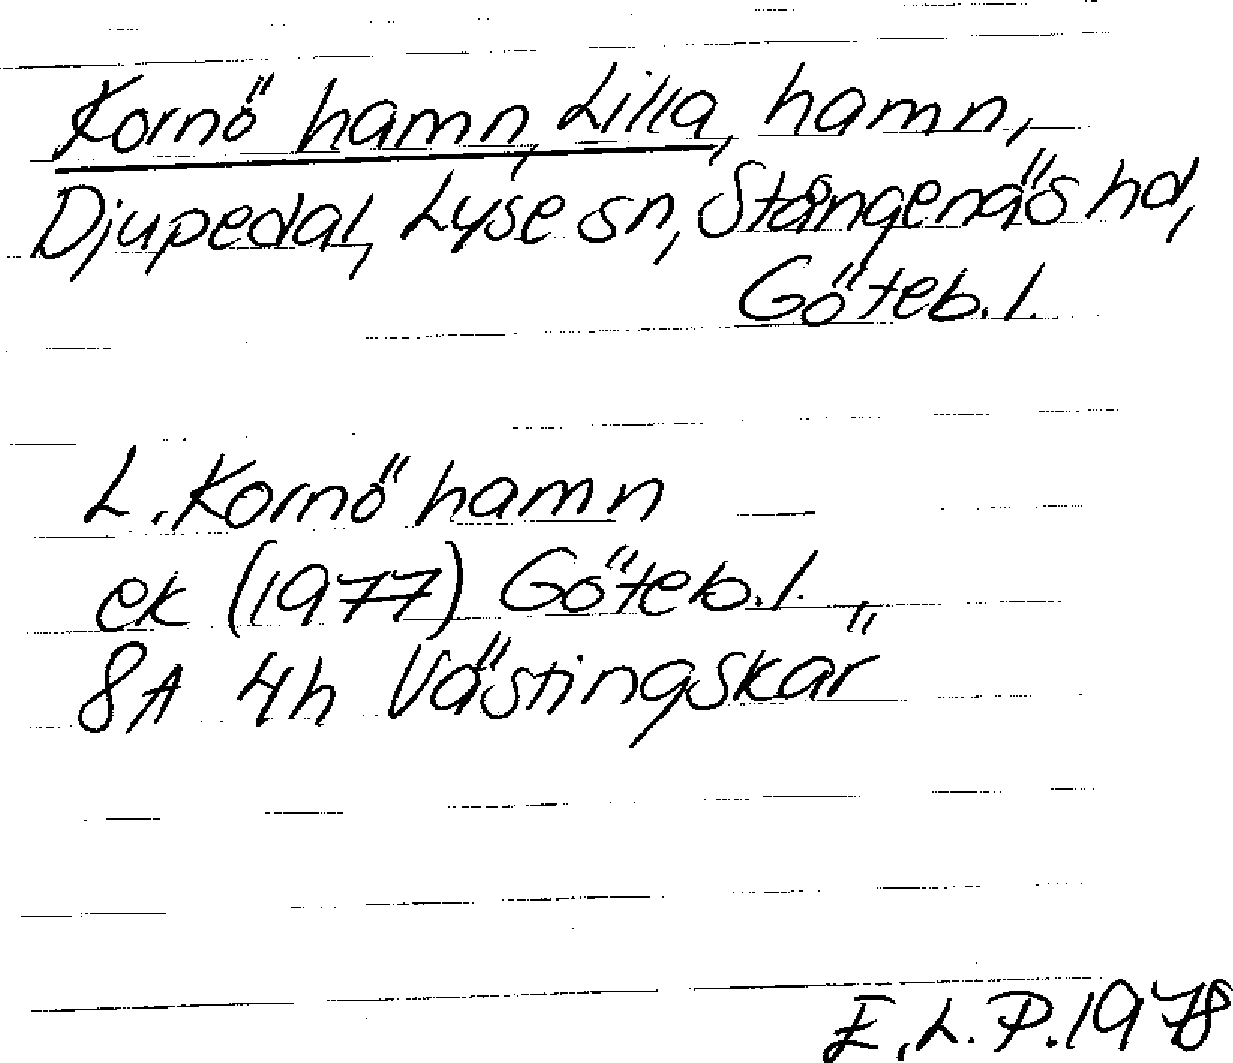 Kornö hamn, Lilla, hamn,
Djupedal, Lyse sn, Stångenäs hd,
Göteb. l.
L. Kornö hamn
ek (1977) Göteb. l.
8A 4h Västingskär
E.L.P. 1978